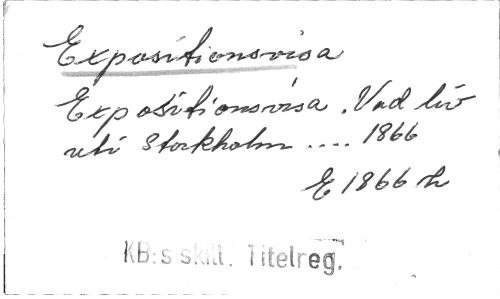 Expositionsvisa
Expositionsvisa. Vad liv
uti Stockholm .... 1866
E 1866 h
KB:s skill. Titelreg.